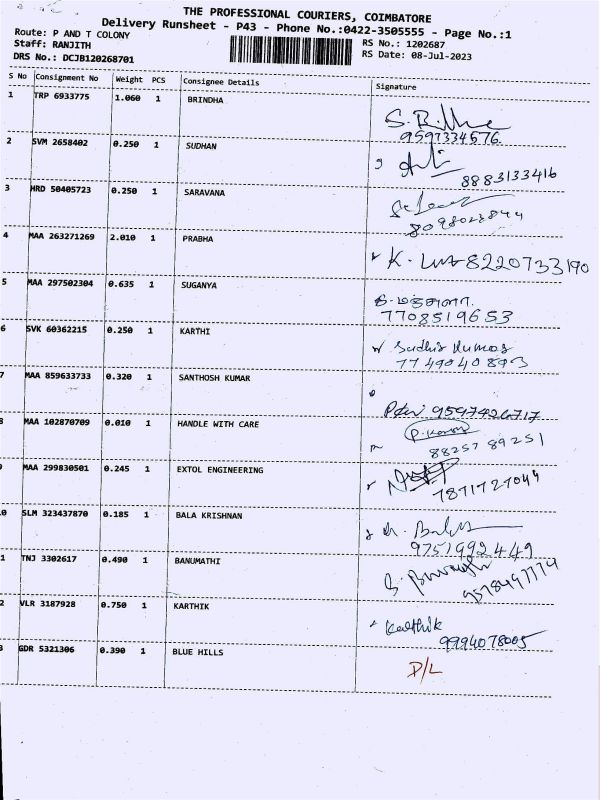 THE PROFESSIONAL COURIERS, COIMBATORE
Delivery Runsheet - P43 - Phone No.:0422-3505555 - Page No.:1
Route: P AND T COLONY
Staff: RANJITH RS No.: 1202687
DRS No.: DCJB120268701 RS Date: 08-Jul-2023
S No Consignment No Weight PCS Consignee Details Signature
1 TRP 6933775 1.060 1 BRINDHA
9597334576
2 SVM 2658402 0.250 1 SUDHAN
8883133416
3 HRD 50405723 0.250 1 SARAVANA
4 MAA 263271269 2.010 1 PRABHA
K. 8220733190
5 MAA 297502304 0.635 1 SUGANYA
7708519653
6 SVK 60362215 0.250 1 KARTHI
Sudhir Kumar
7749040893
7 MAA 859633733 0.320 1 SANTHOSH KUMAR
9597426717
8 MAA 102870709 0.010 1 HANDLE WITH CARE
88257 89251
9 MAA 299830501 0.245 1 EXTOL ENGINEERING
7871727044
0 SLM 323437870 0.185 1 BALA KRISHNAN
9751992449
1 TNJ 3302617 0.490 1 BANUMATHI
2 VLR 3187928 0.750 1 KARTHIK
Karthik
9994078005
3 GDR 5321306 0.390 1 BLUE HILLS
D/L